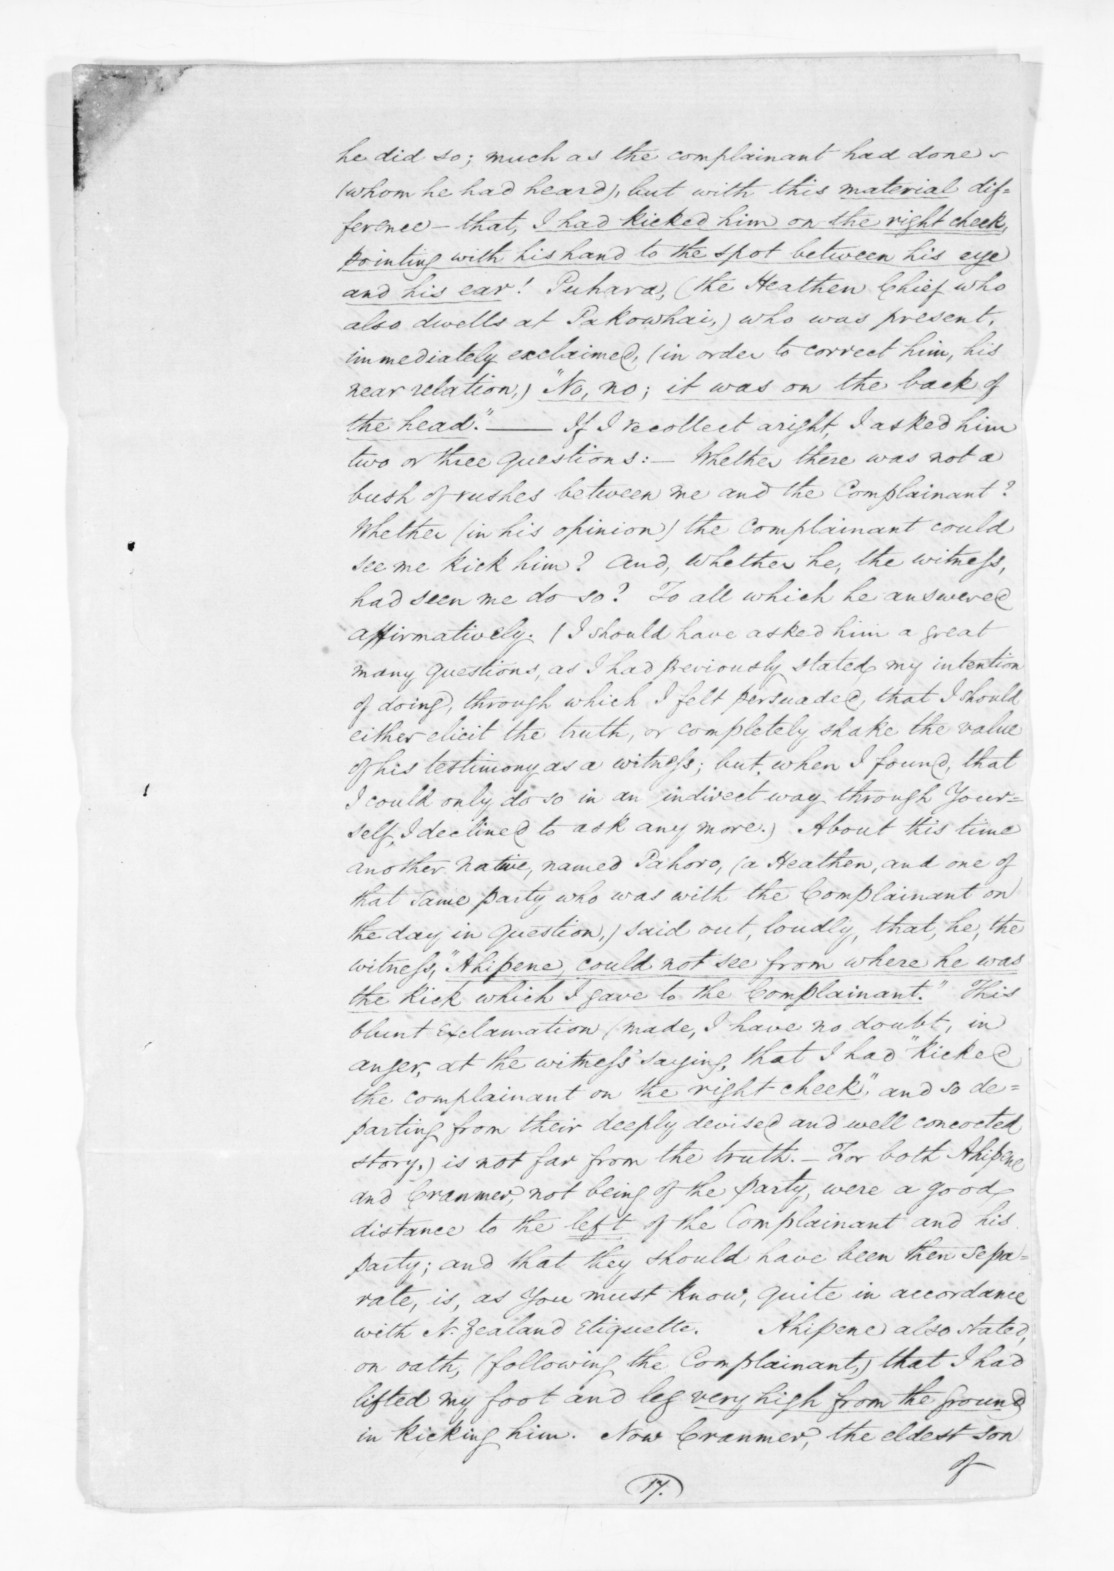 he did so; much as the complainant had done
(whom he had heard), but with this material dif=
ference – that, I had kicked him on the right cheek,
pointing with his hand to the spot between his eye
and his ear! Puhara, (the Heathen Chief who
also dwells at Pakowhai,) who was present,
immediately exclaimed, (in order to correct him, his
near relation,) "No, no; it was on the back of
the head." —— If I recollect aright, I asked him
two or three questions: – Whether there was not a
bush of rushes between me and the Complainant?
Whether (in his opinion) the Complainant could
see me kick him? And, whether he, the witness,
had seen me do so? To all which he answered
affirmatively. (I should have asked him a great
many questions, as I had previously stated my intention
of doing, through which I felt persuaded, that I should
either elicit the truth, or completely shake the value
of his testimony as a witness; but, when I found, that
I could only do so in an indirect way through Your=
self, I declined to ask any more.) About this time
another native, named Pahoro, (a Heathen, and one of
that same party who was with the Complainant on
the day in question,) said out, loudly, that, he, the
witness, "Ahipene, could not see from where he was
the kick which I gave to the Complainant." This
blunt exclamation (made, I have no doubt, in
anger, at the witness' saying, that I had "kicked
the complainant on the right cheek", and so de=
parting from their deeply devised and well concocted
story,) is not far from the truth. – For both Ahipene
and Cranmer, not being of the party, were a good
distance to the left of the Complainant and his
party; and that they should have been then sepa=
rate, is, as You must know, quite in accordance
with N. Zealand Etiquette. Ahipene also stated,
on oath, (following the Complainant,) that I had
lifted my foot and leg very high from the ground
in kicking him. Now Cranmer, the eldest son
of
17.